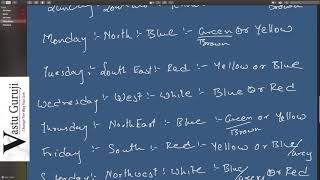 Brown
Monday :- North :- Blue :- Green or Yellow
Brown
Tuesday :- South East :- Red :- Yellow or Blue
Wednesday :- West :- White :- Blue or Red
Thursday :- North East :- Blue :- Green or Yellow
Brown
Friday :- South :- Red :- Yellow or Blue/
Grey
Northwest :- White :- Blue/
or Red
Vastu Guruji